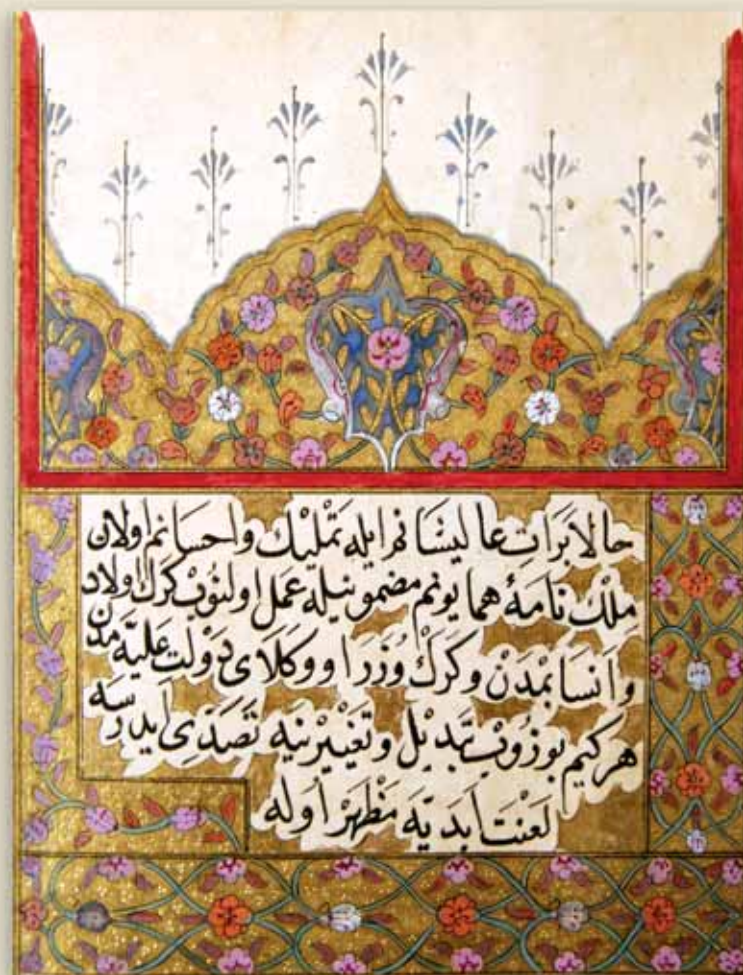 حالا بَرَاتِ عاليشانم ايله تمليك واحسانم اولان
ملك نامهٔ همايونم مضمونيله عمل اولنوب كرك اولاد
وانسابمدن وكرك وزرا ووكلاى دولت عليه مدن
هركيم بوزوب تبديل وتغييرينه تصدى ايدرسه
لعنت ابديه مظهر اوله